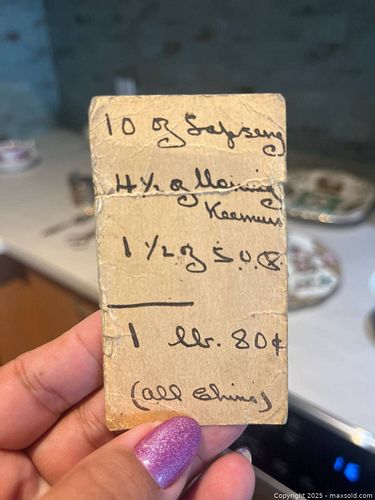 10 oz Lapseng
4½ oz Moning
Keemun
1 ½ oz S.O.C.
1 lb. 80¢
(all China)
Copyright 2025 - maxsold.com